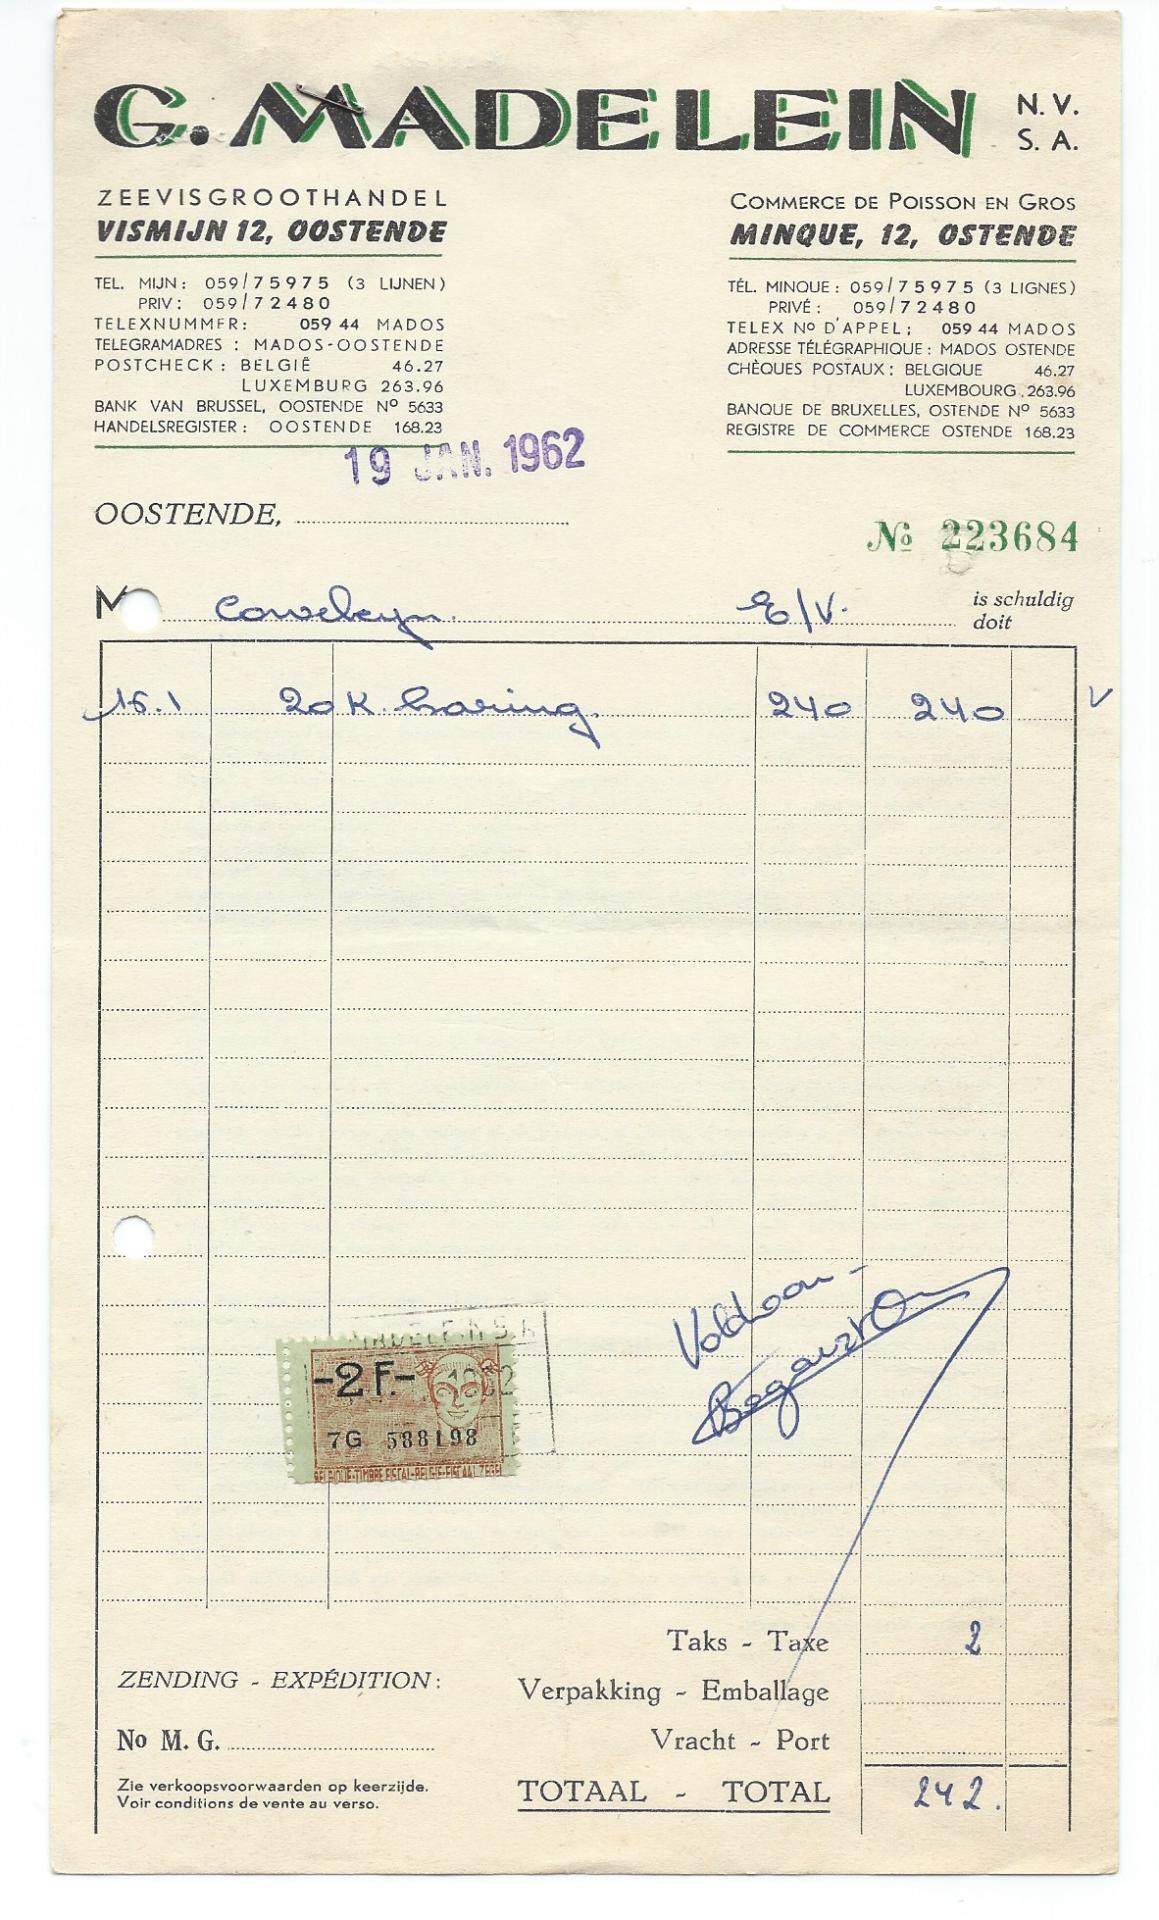 G. MADELEIN N. V.
S. A.
ZEEVISGROOTHANDEL
VISMIJN 12, OOSTENDE
TEL. MIJN : 059/75975 (3 LIJNEN)
PRIV : 059/72480
TELEXNUMMER : 059 44 MADOS
TELEGRAMADRES : MADOS-OOSTENDE
POSTCHECK : BELGIË 46.27
LUXEMBURG 263.96
BANK VAN BRUSSEL, OOSTENDE No 5633
HANDELSREGISTER : OOSTENDE 168.23
COMMERCE DE POISSON EN GROS
MINQUE, 12, OSTENDE
TÉL. MINQUE : 059/75975 (3 LIGNES)
PRIVÉ : 059/72480
TELEX No D'APPEL ; 059 44 MADOS
ADRESSE TÉLÉGRAPHIQUE : MADOS OSTENDE
CHÈQUES POSTAUX : BELGIQUE 46.27
LUXEMBOURG 263.96
BANQUE DE BRUXELLES, OSTENDE No 5633
REGISTRE DE COMMERCE OSTENDE 168.23
19 JAN. 1962
OOSTENDE,
No 223684
M E/V. is schuldig
doit
16.1 20 K. haring 240 240 V
Voldaan -
-2 F.-
7G 588198
BELGIQUE-TIMBRE FISCAL-BELGIE-FISCAALZEGEL
Taks - Taxe 2
ZENDING - EXPÉDITION :
Verpakking - Emballage
No M. G.
Vracht - Port
Zie verkoopsvoorwaarden op keerzijde.
Voir conditions de vente au verso.
TOTAAL - TOTAL 242.